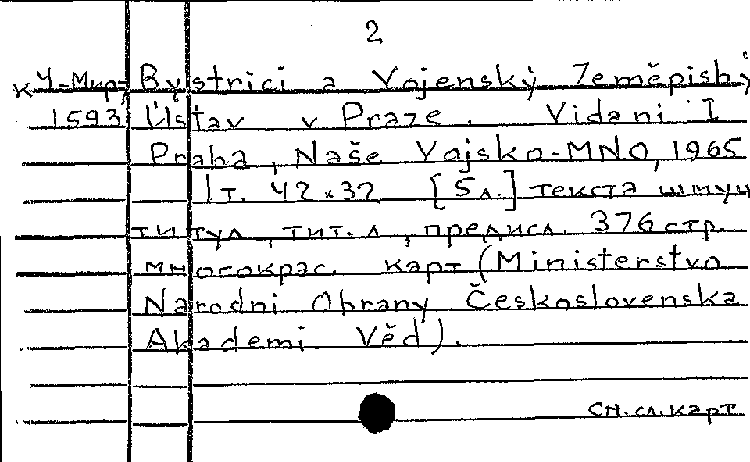 2
К У-Мир, Bystrici a Vojenský Zeměpisbý
1593 Ústav v Praze. Vidani I
Praha, Naše Vojsko-MNO, 1965
1т. 42×32 [5л.] текста шмуц
титул, тит. л, предисл. 376 стр.
многокрас. карт (Ministerstvo
Narodni Obrany Československa
Akademi Věd).
см. сл. карт